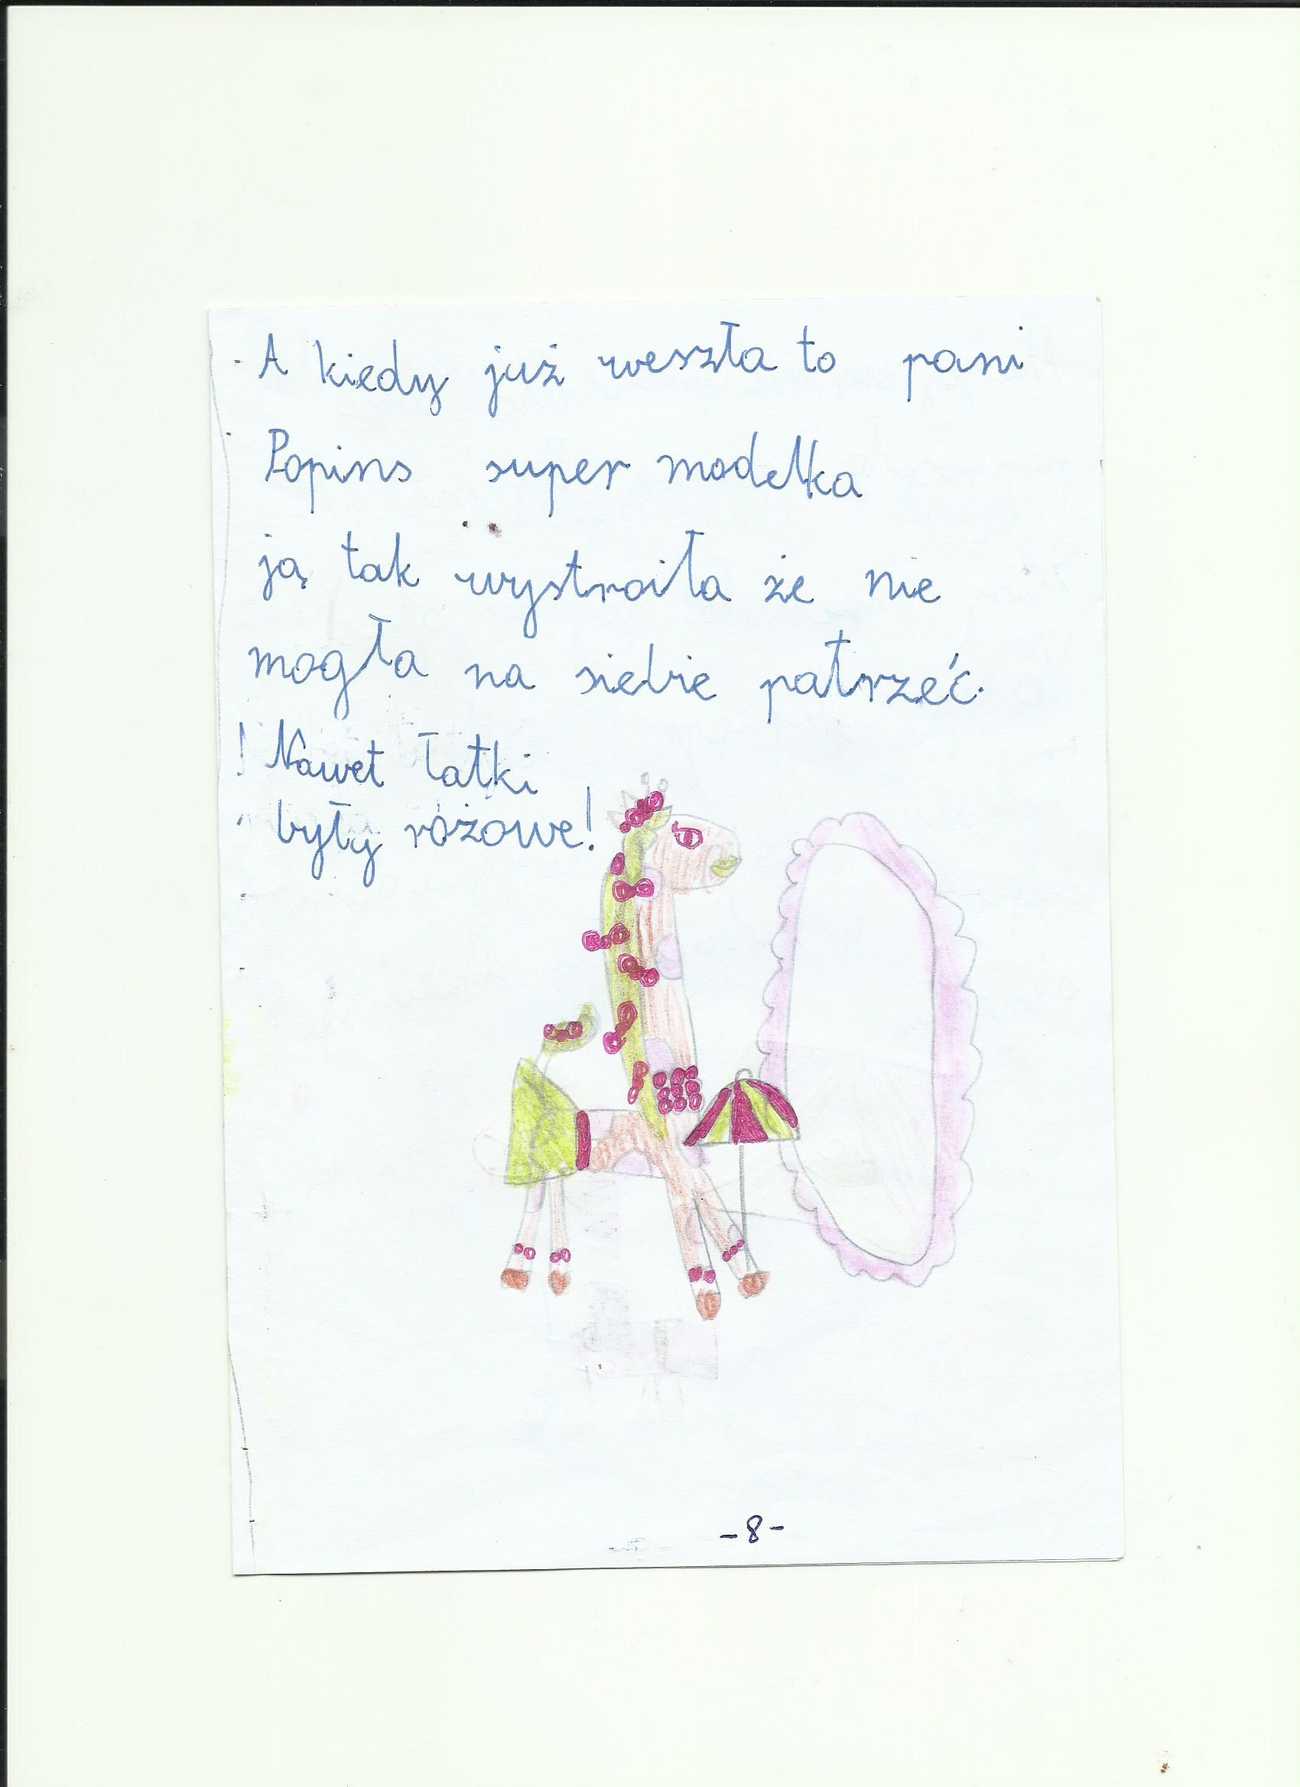 A kiedy już weszła to pani
Popins super modelka
ją tak wystroiła że nie
mogła na siebie patrzeć.
! Nawet łatki
były różowe!
-8-